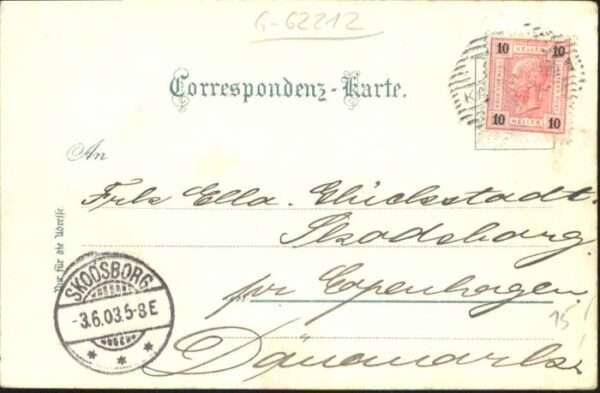 G-62212
Correspondenz-Karte.
10 HELLER 10
10 HELLER 10
An
Frk Ella Glückstadt.
Skodsborg
pr Copenhagen
Dänemark
Nur für die Adresse.
SKODSBORG
-3.6.03.5-8E
15